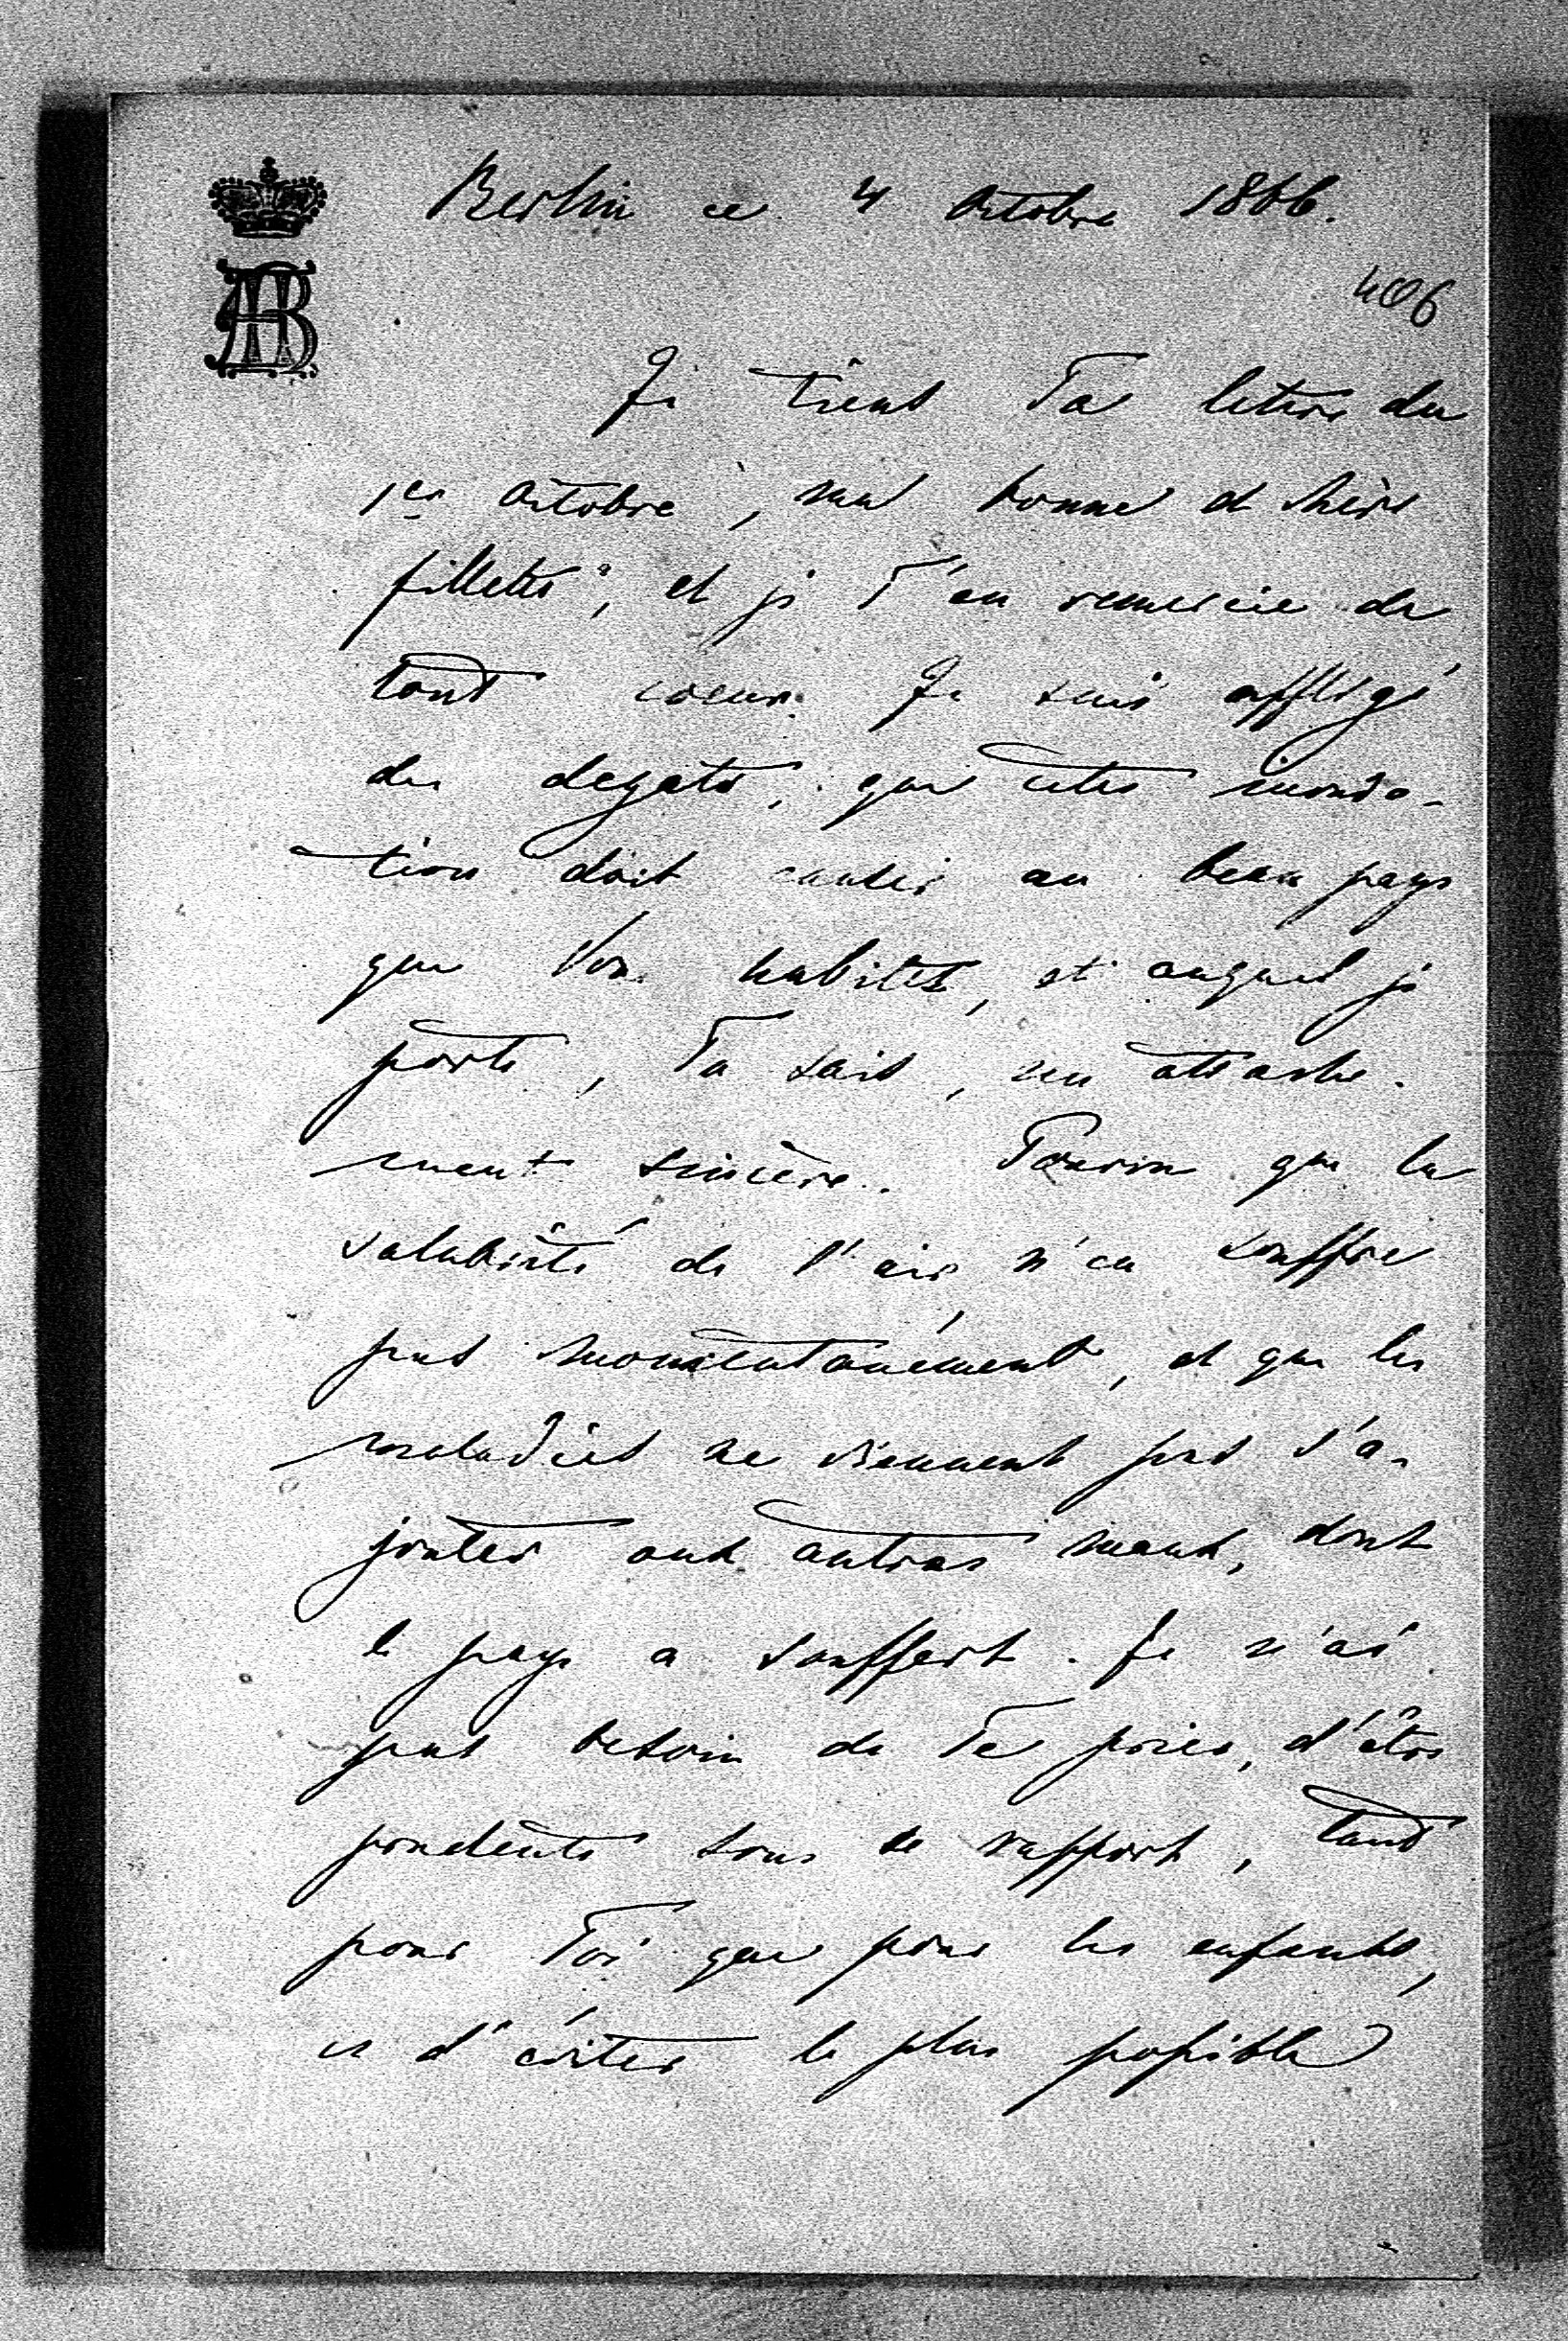 Berlin ce 4 Octobre 1866.
406
AB
Je tiens Ta lettre du
1er Octobre, ma bonne et chère
fillette, et je T'en remercie de
tout coeur. Je suis affligé
des degats, que cette inonda-
tion doit causer au beau pays
que Vous habitez, et auquel je
porte, Tu sais, un attache-
ment sincère. Pourvu que la
salubrité de l'air n'en souffre
pas momentanément, et que les
maladies ne viennent pas s'a-
jouter aux autres maux, dont
le pays a souffert. Je n'ai
pas besoin de Te prier, d'être
prudente sous ce rapport, tant
pour Toi que pour les enfants,
et d'éviter le plus possible